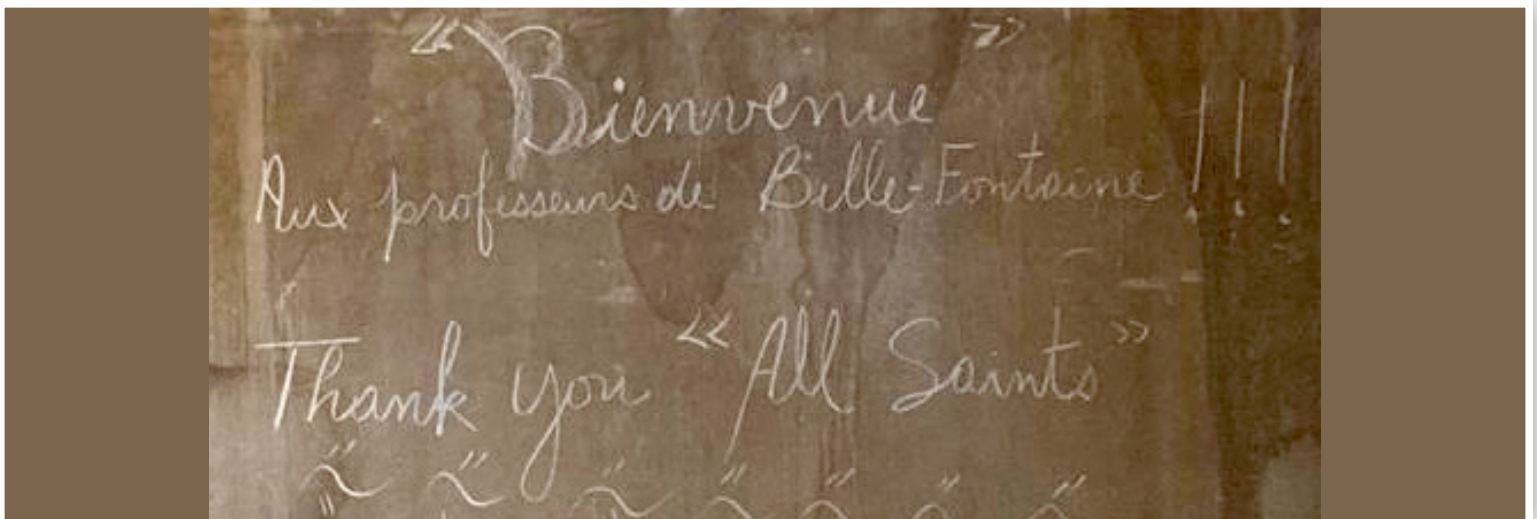 « Bienvenue »
Aux professeurs de Bille-Fontaine !!!
Thank you « All Saints »